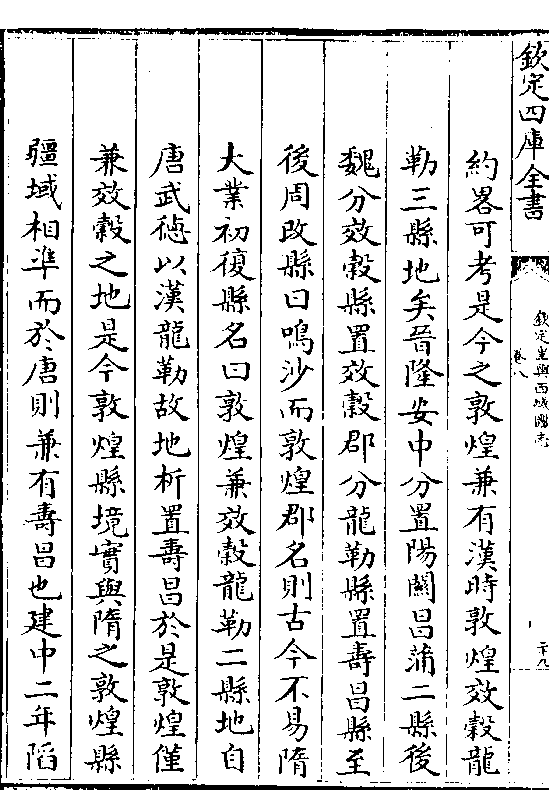 欽定四庫全書
欽定皇輿西域圖志
卷八
約畧可考是今之敦煌兼有漢時敦煌效穀龍
勒三縣地矣晉隆安中分置陽關昌蒲二縣後
魏分效穀縣置效穀郡分龍勒縣置壽昌縣至
後周改縣曰鳴沙而敦煌郡名則古今不易隋
大業初復縣名曰敦煌兼效穀龍勒二縣地自
唐武徳以漢龍勒故地析置壽昌於是敦煌僅
兼效穀之地是今敦煌縣境實與隋之敦煌縣
疆域相準而於唐則兼有壽昌也建中二年䧟